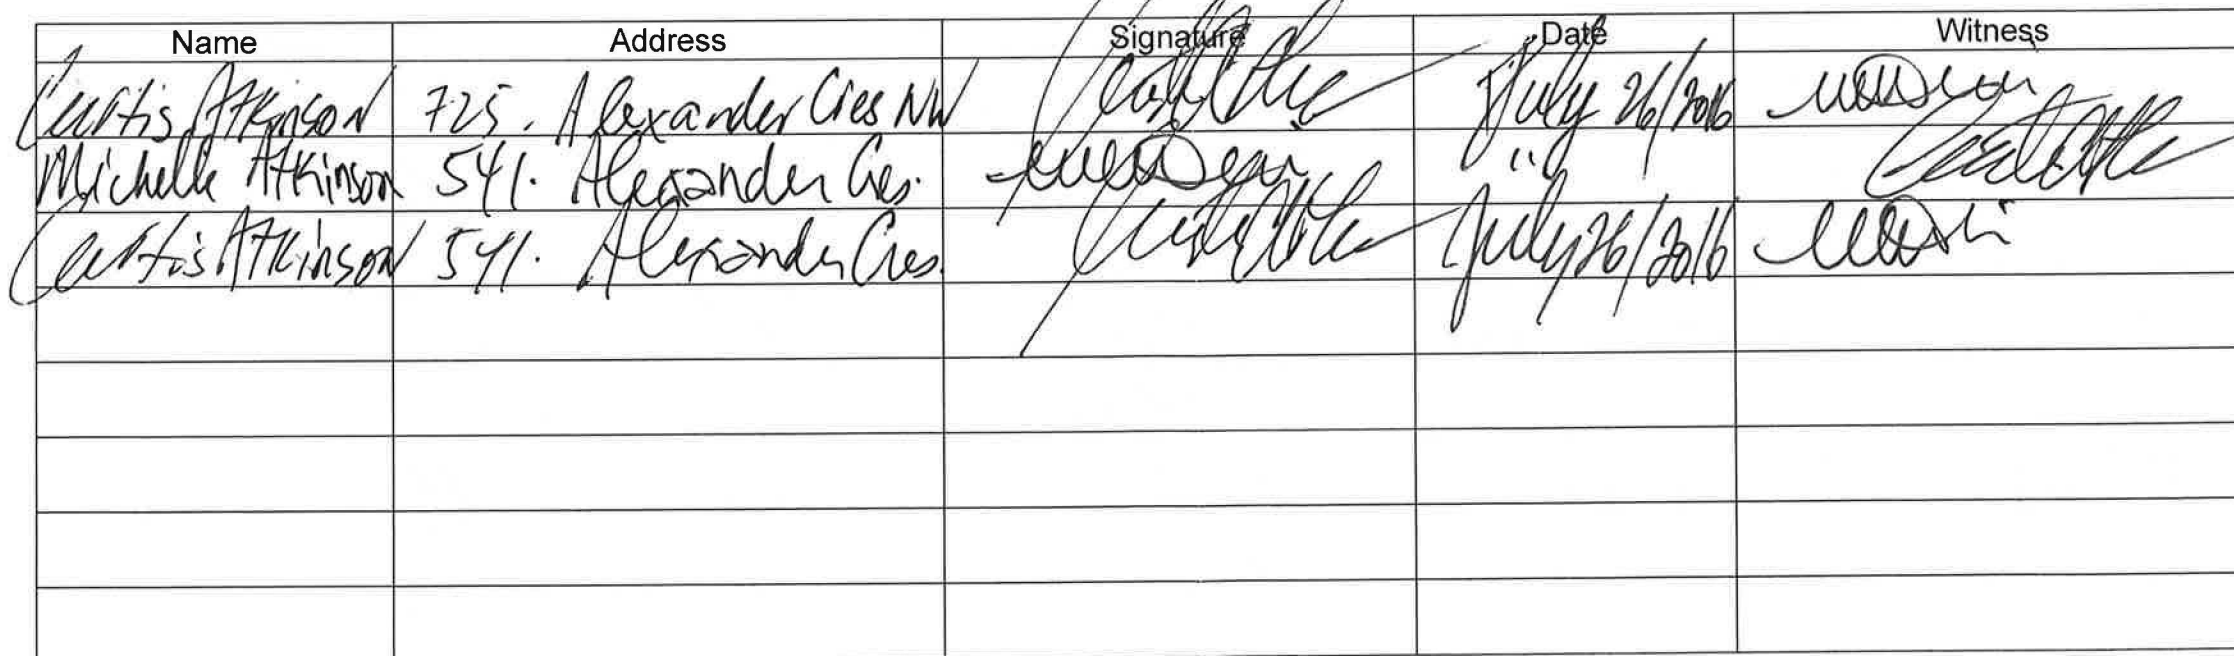 Name Address Signature Date Witness
Curtis Atkinson 725. Alexander Cres NW July 26/2016
Michelle Atkinson 541. Alexander Cres. "
Curtis Atkinson 541. Alexander Cres. July 26/2016